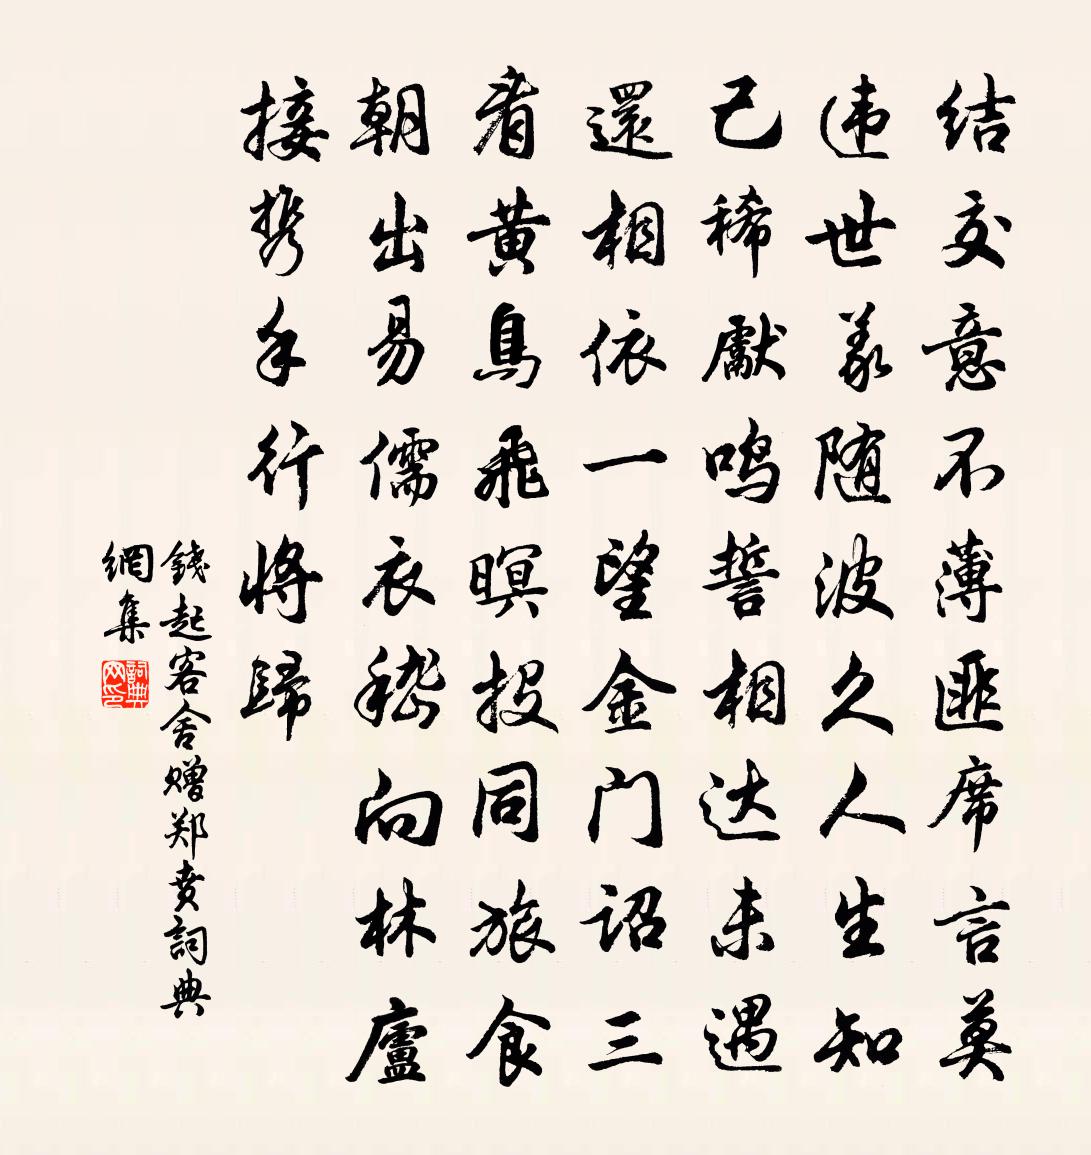 结交意不薄匪席言莫
违世義随波久人生知
己稀獻鸣誓相达未遇
還相依一望金门诏三
看黄鳥飛暝投同旅食
朝出易儒衣嵇向林廬
接携手行將歸
錢起客舍赠郑贲詞典
網集
詞典
网印